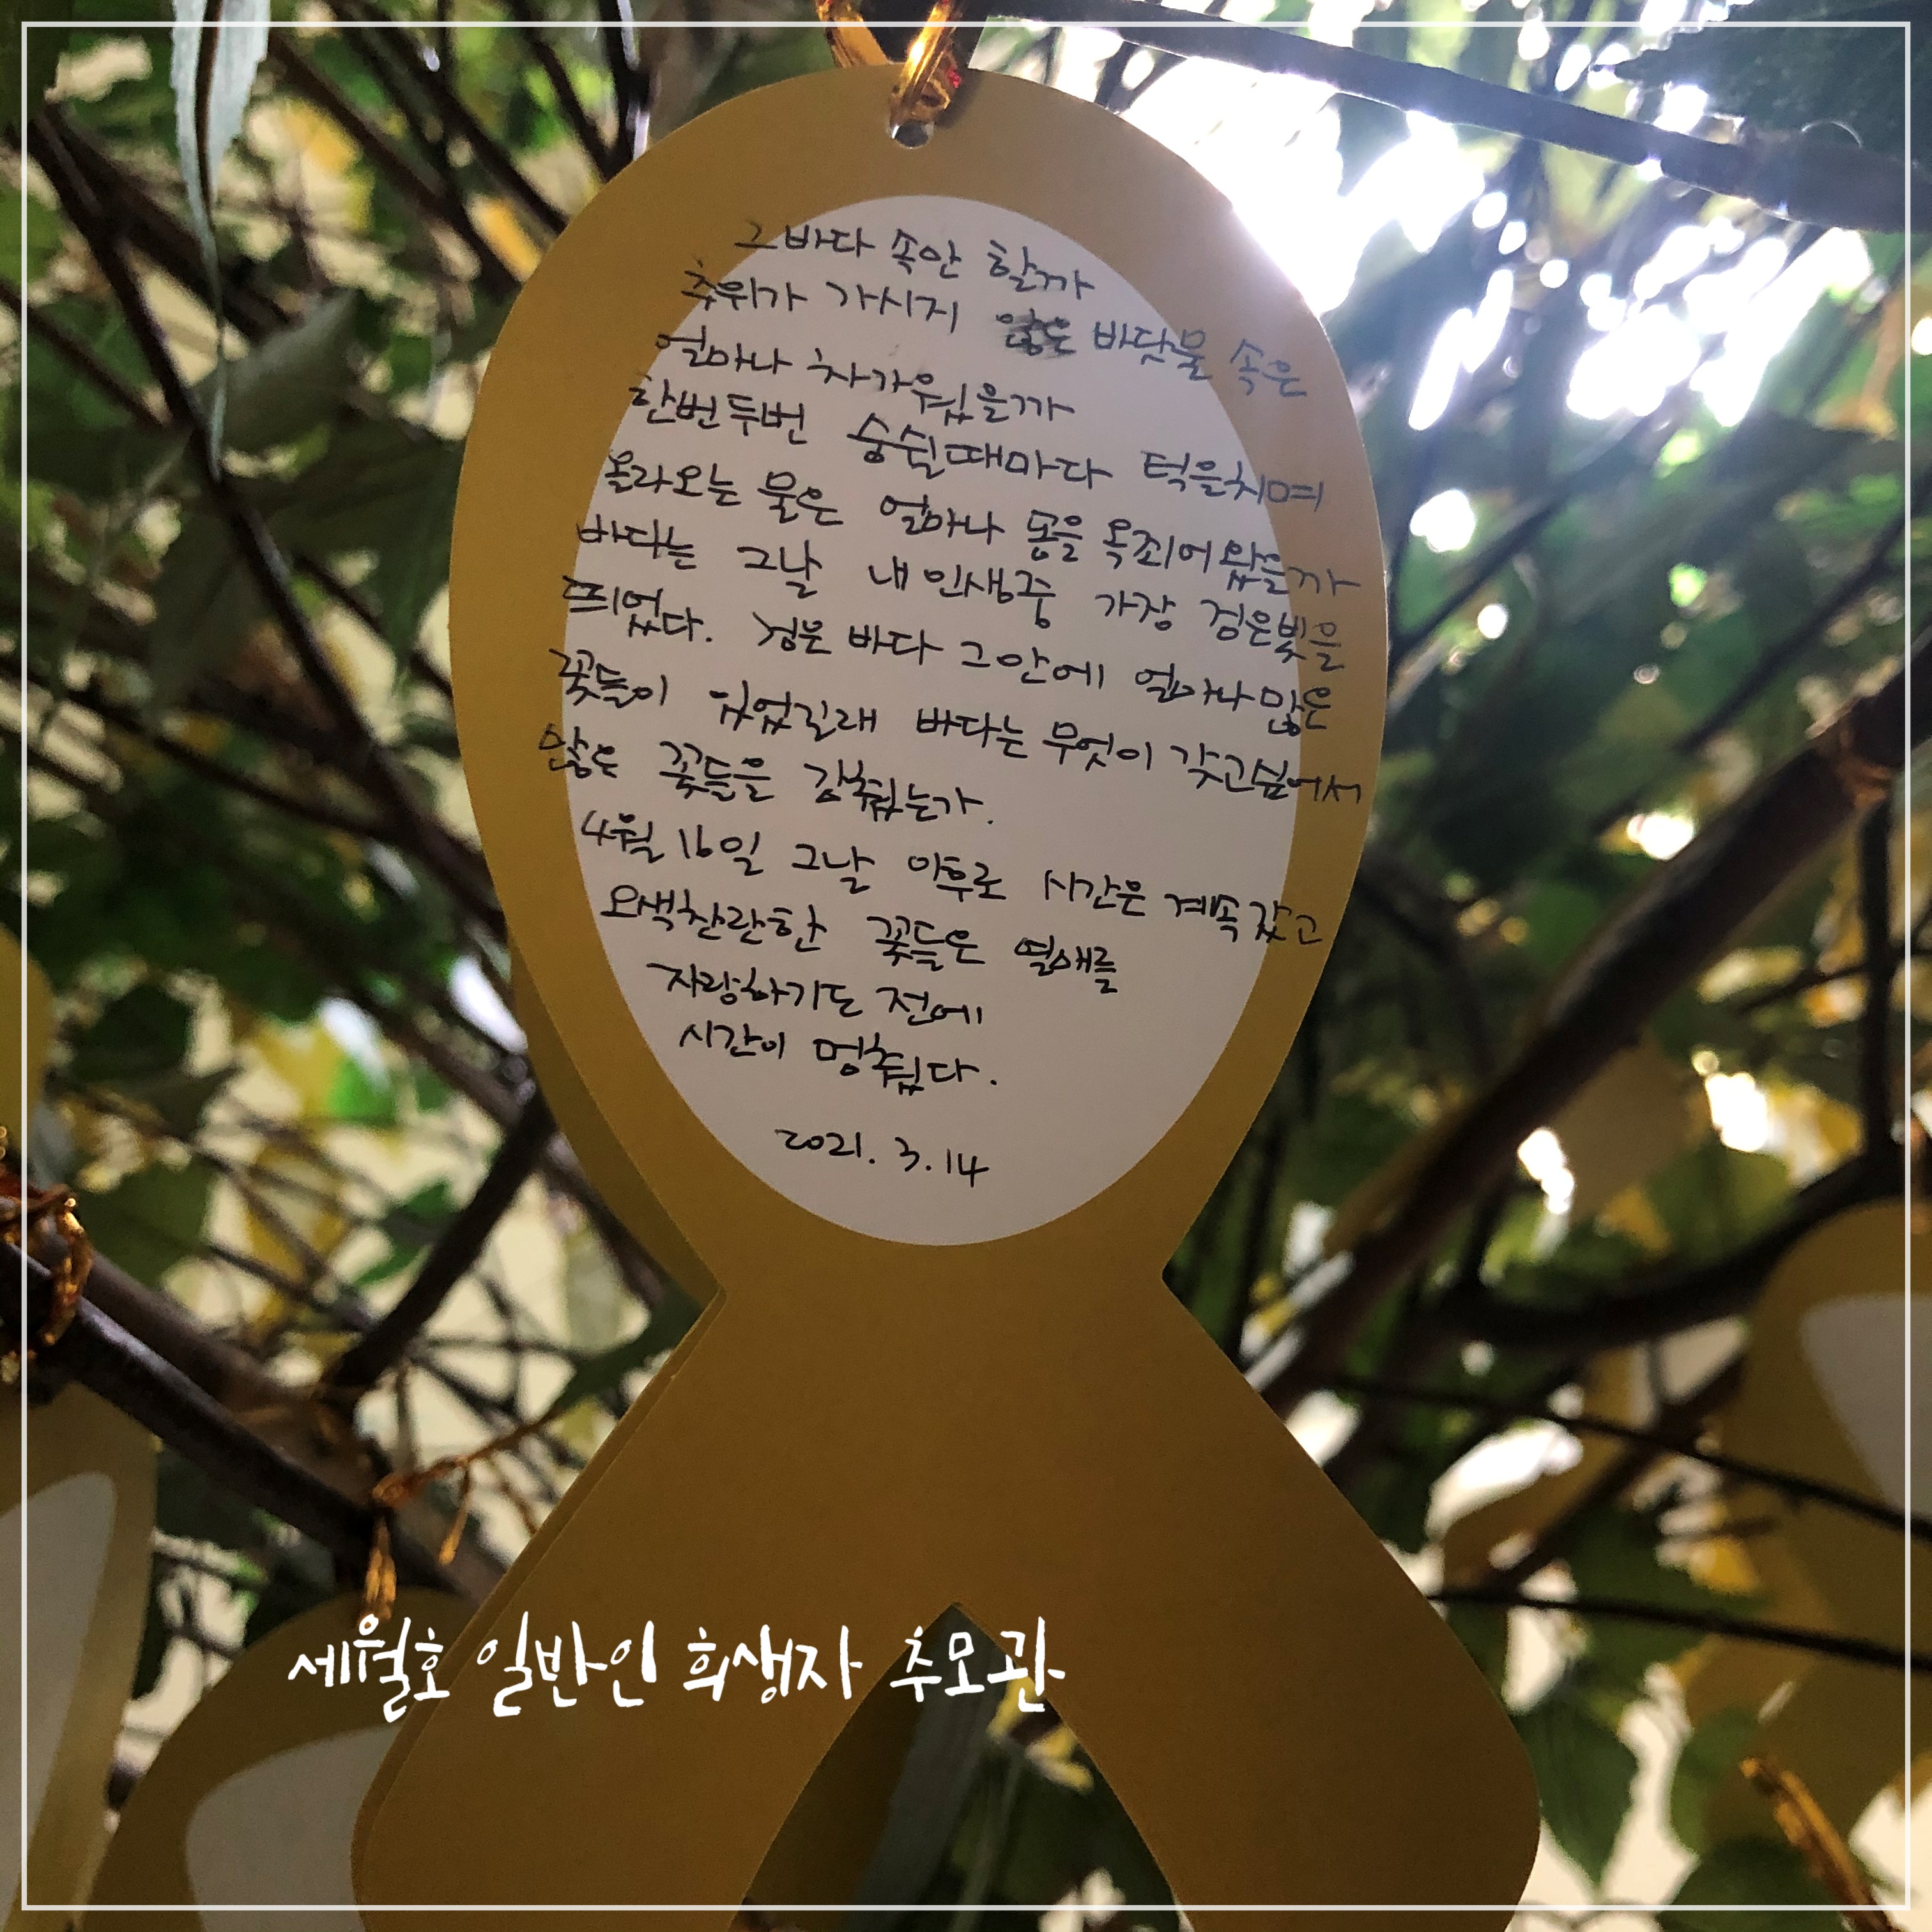 그바다 속안 할까
추위가 가시지 않은 바닷물 속은
얼마나 차가웠을까
한번두번 숨쉴때마다 턱을치며
올라오는 물은 얼마나 몸을 옥죄어왔을까
바다는 그날 내인생중 가장 검은빛을
띄었다. 검은 바다 그안에 얼마나많은
꽃들이 있었길래 바다는 무엇이 갖고싶어서
많은 꽃들을 감췄는가.
4월 16일 그날 이후로 시간은 계속갔고
오색찬란한 꽃들은 열매를
자랑하기도 전에
시간이 멈췄다.
2021. 3. 14
세월호 일반인 희생자 추모관